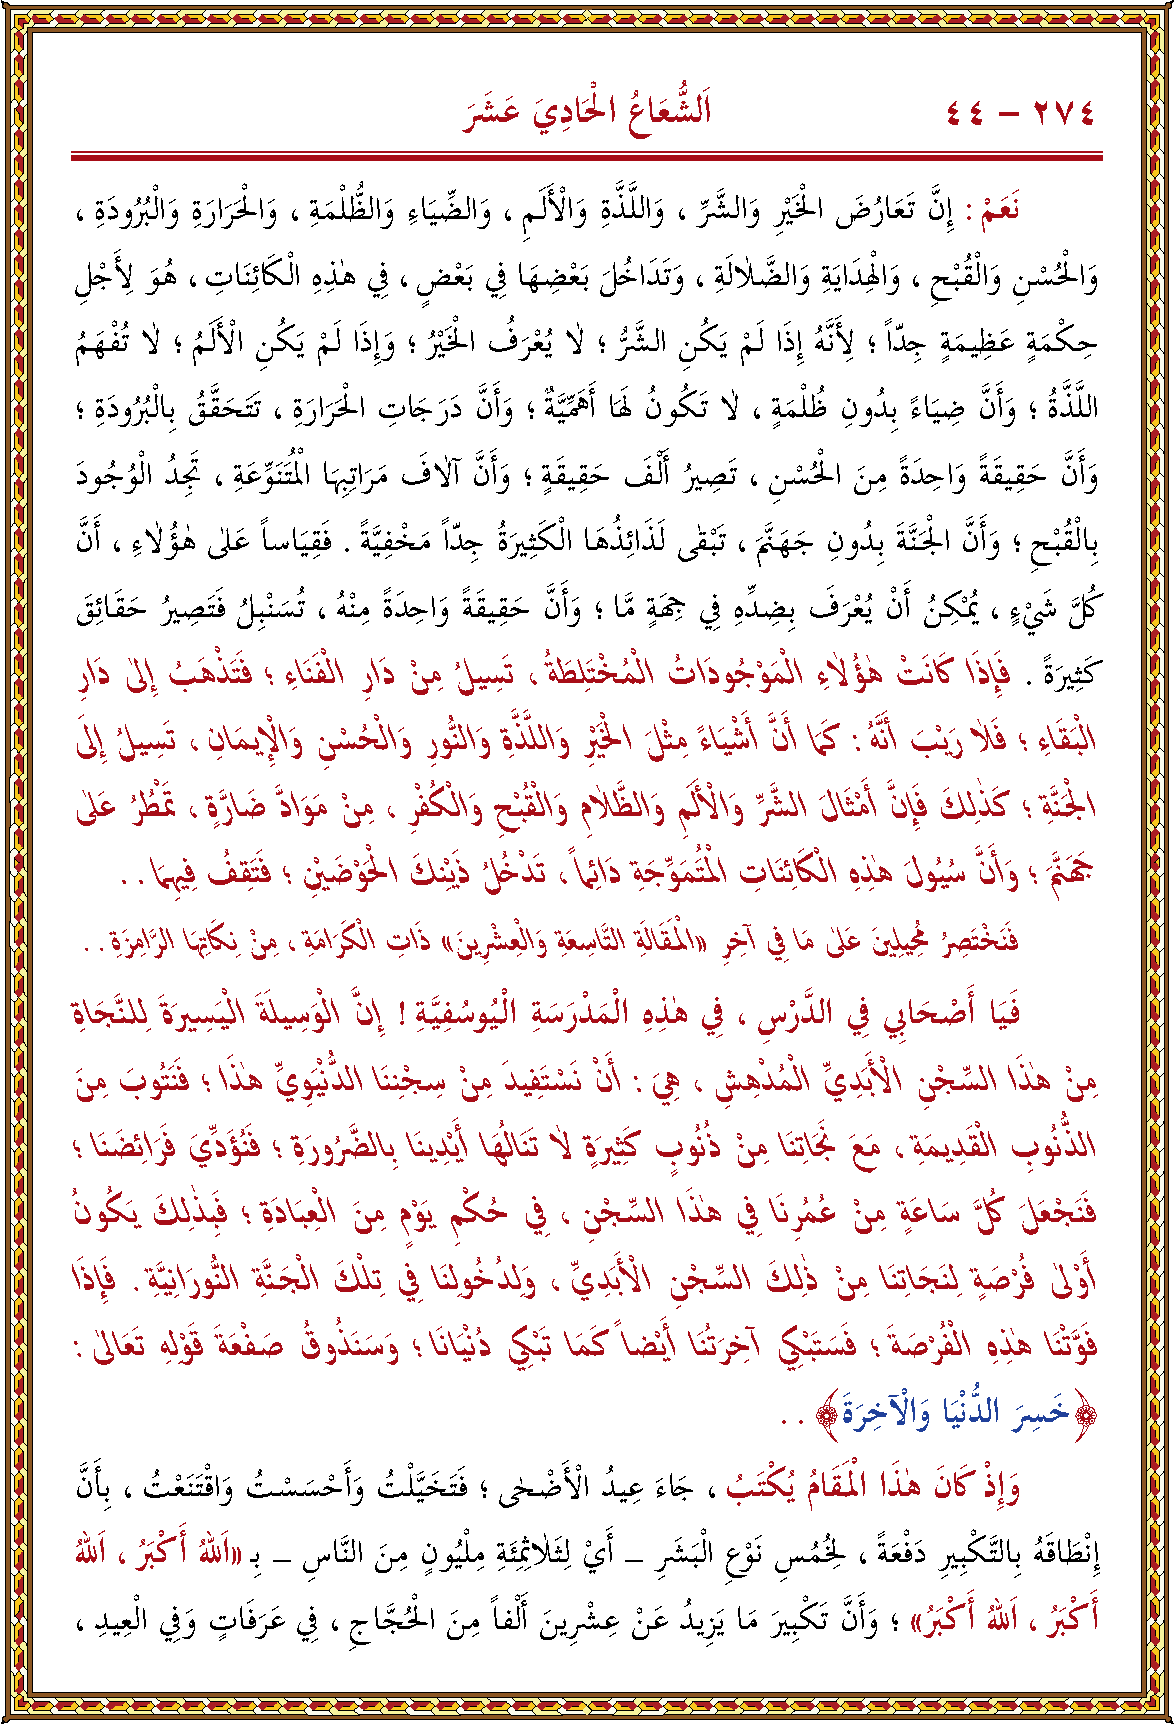 ٢٧٤ – ٤٤ اَلشُّعَاعُ الْحَادِيَ عَشَرَ
نَعَمْ : إِنَّ تَعَارُضَ الْخَيْرِ وَالشَّرِّ ، وَاللَّذَّةِ وَالْأَلَمِ ، وَالضِّيَاءِ وَالظُّلْمَةِ ، وَالْحَرَارَةِ وَالْبُرُودَةِ ،
وَالْحُسْنِ وَالْقُبْحِ ، وَالْهِدَايَةِ وَالضَّلَالَةِ ، وَتَدَاخُلَ بَعْضِهَا فِي بَعْضٍ ، فِي هٰذِهِ الْكَائِنَاتِ ، هُوَ لِأَجْلِ
حِكْمَةٍ عَظِيمَةٍ جِدّاً ؛ لِأَنَّهُ إِذَا لَمْ يَكُنِ الشَّرُّ ؛ لَا يُعْرَفُ الْخَيْرُ ؛ وَإِذَا لَمْ يَكُنِ الْأَلَمُ ؛ لَا تُفْهَمُ
اللَّذَّةُ ؛ وَأَنَّ ضِيَاءً بِدُونِ ظُلْمَةٍ ، لَا تَكُونُ لَهَا أَهَمِّيَّةٌ ؛ وَأَنَّ دَرَجَاتِ الْحَرَارَةِ ، تَتَحَقَّقُ بِالْبُرُودَةِ ؛
وَأَنَّ حَقِيقَةً وَاحِدَةً مِنَ الْحُسْنِ ، تَصِيرُ أَلْفَ حَقِيقَةٍ ؛ وَأَنَّ آلَافَ مَرَاتِبِهَا الْمُتَنَوِّعَةِ ، تَجِدُ الْوُجُودَ
بِالْقُبْحِ ؛ وَأَنَّ الْجَنَّةَ بِدُونِ جَهَنَّمَ ، تَبْقٰى لَذَائِذُهَا الْكَثِيرَةُ جِدّاً مَخْفِيَّةً . فَقِيَاساً عَلٰى هٰؤُلَاءِ ، أَنَّ
كُلَّ شَيْءٍ ، يُمْكِنُ أَنْ يُعْرَفَ بِضِدِّهِ فِي جِهَةٍ مَّا ؛ وَأَنَّ حَقِيقَةً وَاحِدَةً مِنْهُ ، تُسَنْبِلُ فَتَصِيرُ حَقَائِقَ
كَثِيرَةً . فَإِذَا كَانَتْ هٰؤُلَاءِ الْمَوْجُودَاتُ الْمُخْتَلِطَةُ ، تَسِيلُ مِنْ دَارِ الْفَنَاءِ ؛ فَتَذْهَبُ إِلٰى دَارِ
الْبَقَاءِ ؛ فَلَا رَيْبَ أَنَّهُ : كَمَا أَنَّ أَشْيَاءً مِثْلَ الْخَيْرِ وَاللَّذَّةِ وَالنُّورِ وَالْحُسْنِ وَالْإِيمَانِ ، تَسِيلُ إِلَى
الْجَنَّةِ ؛ كَذٰلِكَ فَإِنَّ أَمْثَالَ الشَّرِّ وَالْأَلَمِ وَالظَّلَامِ وَالْقُبْحِ وَالْكُفْرِ ، مِنْ مَوَادَّ ضَارَّةٍ ، تَمْطُرُ عَلٰى
جَهَنَّمَ ؛ وَأَنَّ سُيُولَ هٰذِهِ الْكَائِنَاتِ الْمُتَمَوِّجَةِ دَائِماً ، تَدْخُلُ ذَيْنِكَ الْحَوْضَيْنِ ؛ فَتَقِفُ فِيهِمَا . .
فَنَخْتَصِرُ مُحِيلِينَ عَلٰى مَا فِي آخِرِ «الْمَقَالَةِ التَّاسِعَةِ وَالْعِشْرِينَ» ذَاتِ الْكَرَامَةِ ، مِنْ نِكَاتِهَا الرَّامِزَةِ . .
فَيَا أَصْحَابِي فِي الدَّرْسِ ، فِي هٰذِهِ الْمَدْرَسَةِ الْيُوسُفِيَّةِ ! إِنَّ الْوَسِيلَةَ الْيَسِيرَةَ لِلنَّجَاةِ
مِنْ هٰذَا السِّجْنِ الْأَبَدِيِّ الْمُدْهِشِ ، هِيَ : أَنْ نَسْتَفِيدَ مِنْ سِجْنِنَا الدُّنْيَوِيِّ هٰذَا ؛ فَنَتُوبَ مِنَ
الذُّنُوبِ الْقَدِيمَةِ ، مَعَ نَجَاتِنَا مِنْ ذُنُوبٍ كَثِيرَةٍ لَا تَنَالُهَا أَيْدِينَا بِالضَّرُورَةِ ؛ فَنُؤَدِّيَ فَرَائِضَنَا ؛
فَنَجْعَلَ كُلَّ سَاعَةٍ مِنْ عُمُرِنَا فِي هٰذَا السِّجْنِ ، فِي حُكْمِ يَوْمٍ مِنَ الْعِبَادَةِ ؛ فَبِذٰلِكَ يَكُونُ
أَوْلٰى فُرْصَةٍ لِنَجَاتِنَا مِنْ ذٰلِكَ السِّجْنِ الْأَبَدِيِّ ، وَلِدُخُولِنَا فِي تِلْكَ الْجَنَّةِ النُّورَانِيَّةِ . فَإِذَا
فَوَّتْنَا هٰذِهِ الْفُرْصَةَ ؛ فَسَتَبْكِي آخِرَتُنَا أَيْضاً كَمَا تَبْكِي دُنْيَانَا ؛ وَسَنَذُوقُ صَفْعَةَ قَوْلِهِ تَعَالٰى :
﴿خَسِرَ الدُّنْيَا وَالْآخِرَةَ﴾ . .
وَإِذْ كَانَ هٰذَا الْمَقَامُ يُكْتَبُ ، جَاءَ عِيدُ الْأَضْحٰى ؛ فَتَخَيَّلْتُ وَأَحْسَسْتُ وَاقْتَنَعْتُ ، بِأَنَّ
إِنْطَاقَهُ بِالتَّكْبِيرِ دَفْعَةً ، لِخُمْسِ نَوْعِ الْبَشَرِ – أَيْ لِثَلَاثِمِئَةِ مِلْيُونٍ مِنَ النَّاسِ – بِـ «اَللّٰهُ أَكْبَرُ ، اَللّٰهُ
أَكْبَرُ ، اَللّٰهُ أَكْبَرُ» ؛ وَأَنَّ تَكْبِيرَ مَا يَزِيدُ عَنْ عِشْرِينَ أَلْفاً مِنَ الْحُجَّاجِ ، فِي عَرَفَاتٍ وَفِي الْعِيدِ ،